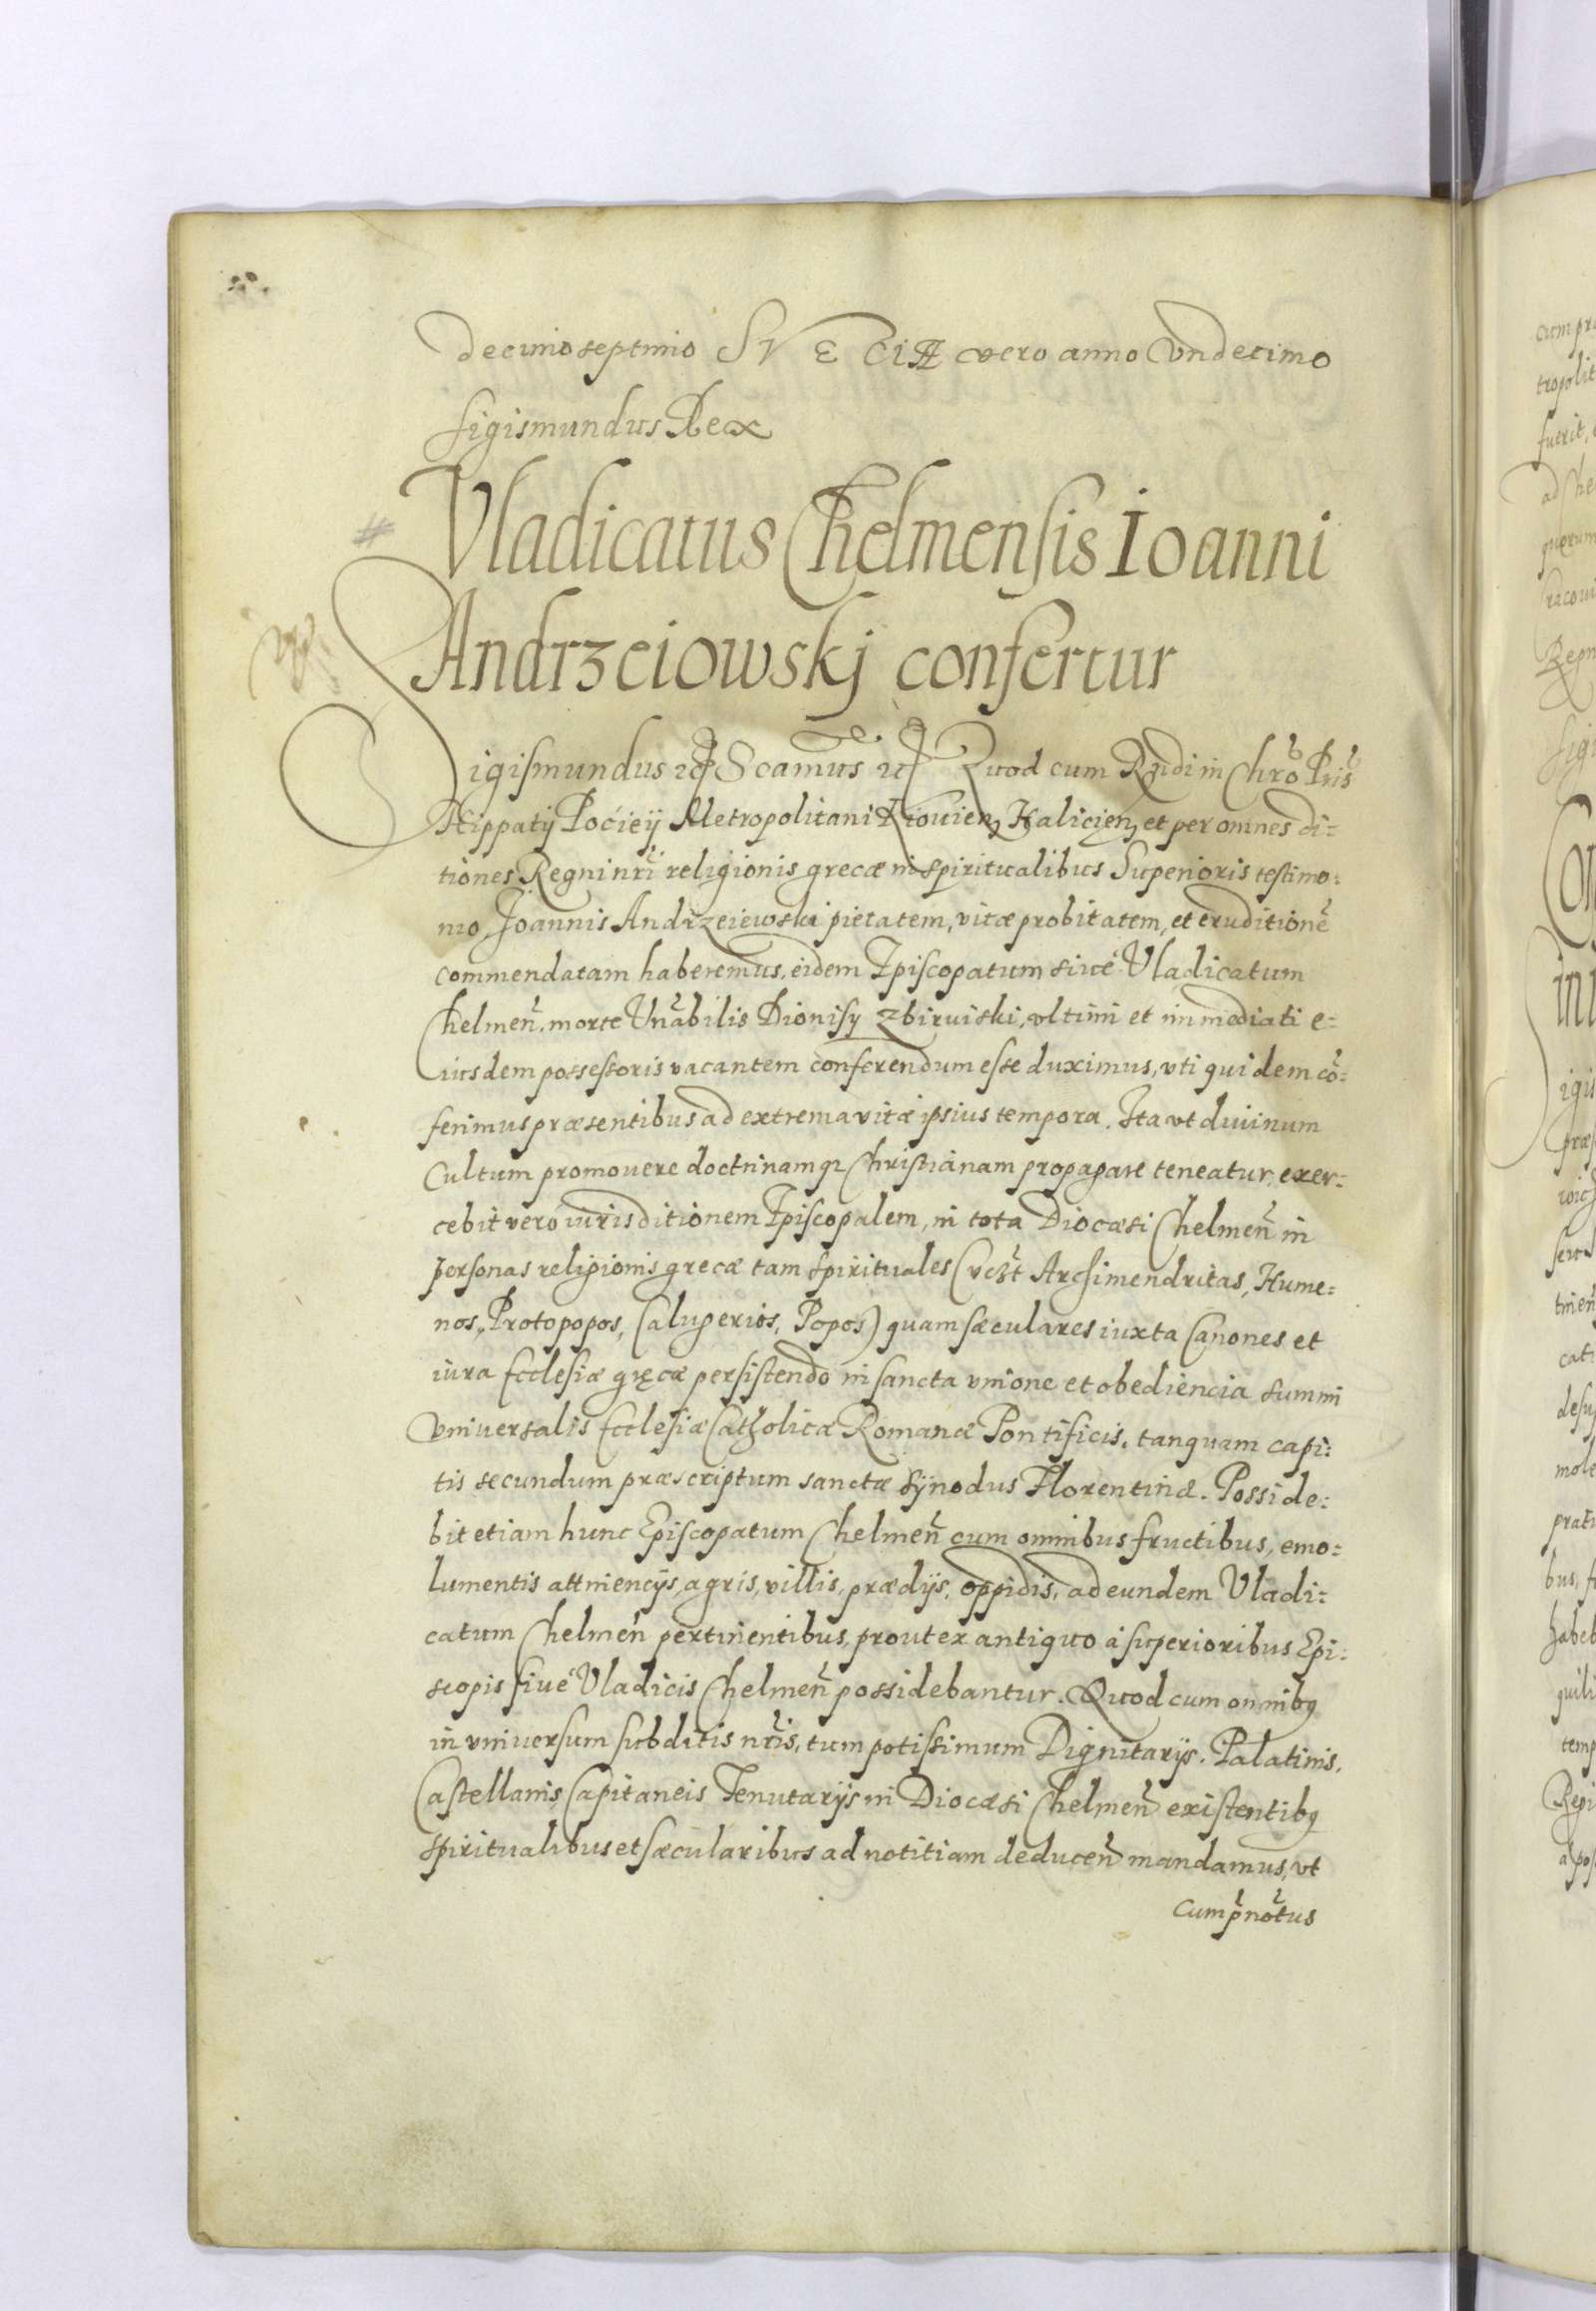 decimo septimo SVECIÆ vero anno Vndecimo
Sigismundus Rex
Vladicatus Chelmensis Ioanni
Andrzeiowskj confertur
Sigismundus etc Scamus etc Quod cum Rndi in Chro Pris
Hippatij Pociey Metropolitani Kiouien Halicien et per omnes di=
tiones Regni nri religionis grecæ in spiritualibus Superioris testimo=
nio, Joannis Andrzeiewski pietatem, vitæ probitatem, et eruditionē
commendatam haberemus, eidem Episcopatum siue Vladicatum
Chelmen. morte Vnabilis Dionisy Zbiruiski, vltimi et immediati e=
iusdem possessoris vacantem conferendum esse duximus, vti quidem cō=
ferimus præsentibus ad extrema vitæ ipsius tempora. Ita vt diuinum
Cultum promouere doctrinamq Christianam propagare teneatur, exer=
cebit vero iurisditionem Episcopalem, in tota Diocæsi Chelmen in
personas religionis grecæ tam spirituales (vczt Archimendritas, Hume=
nos, Protopopos, Calugerios, Popos) quam sæculares iuxta Canones et
iura Ecclesiæ gręcæ persistendo in sancta vnione et obediencia summi
vniuersalis Ecclesiæ Catholicæ Romanæ Pontificis, tanquam capi=
tis secundum præscriptum sanctæ Synodus Florentinæ. Posside=
bit etiam hunc Episcopatum Chelmen cum omnibus fructibus, emo=
lumentis attinencijs, agris, villis, prædijs, oppidis, ad eundem Vladi=
catum Chelmen pertinentibus, prout ex antiquo à superioribus Epi=
scopis siue Vladicis Chelmen possidebantur. Quod cum omnibq
in vniuersum subditis nris, tum potissimum Dignitarijs, Palatinis,
Castellanis, Capitaneis Tenutarijs in Diocæsi Chelmen existentibq
spiritualibus et sæcularibus ad notitiam deducen mandamus, vt
cum pnotus